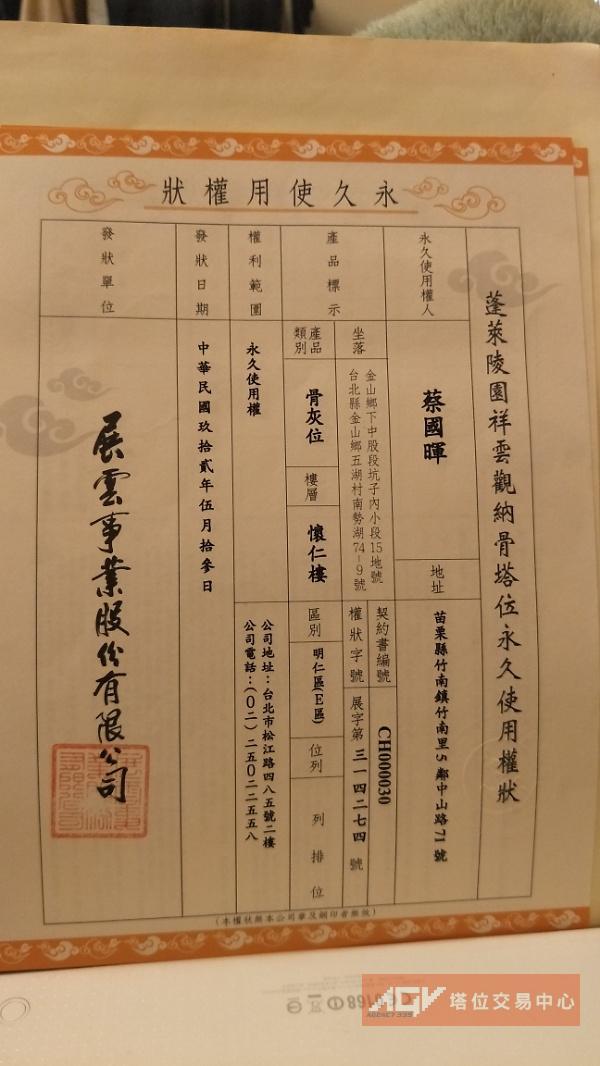 永久使用權狀
蓬萊陵園祥雲觀納骨塔位永久使用權狀
永久使用權人
蔡國暉
地址
苗栗縣竹南鎮竹南里5鄰中山路71號
產品標示
坐落
金山鄉下中股段坑子內小段15地號
台北縣金山鄉五湖村南勢湖74-9號
契約書編號
CH000030
權狀字號
展字第三一四二七四號
產品類別
骨灰位
樓層
懷仁樓
區別
明仁區(E區)
位列
列 排 位
權利範圍
永久使用權
公司地址：台北市松江路四八五號二樓
公司電話：(０二)二五０二二五五八
發狀日期
中華民國玖拾貳年伍月拾參日
發狀單位
展雲事業股份有限公司
(本權狀無本公司章及鋼印者無效)
AGV
AGENCY 339
塔位交易中心